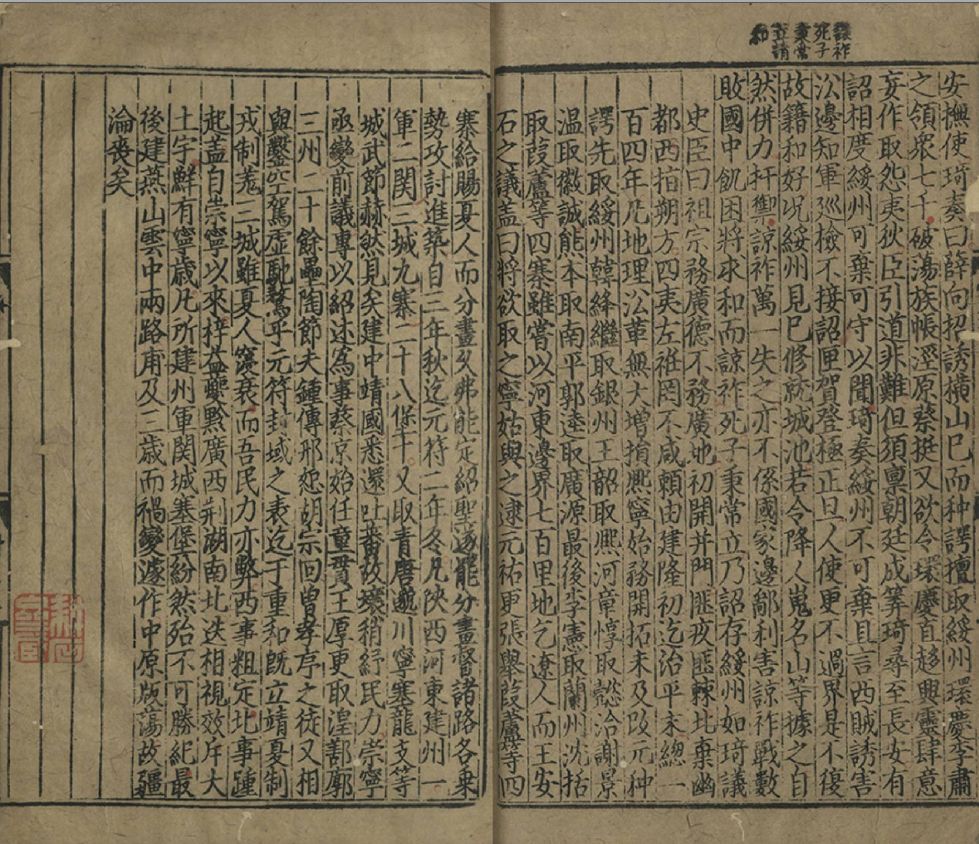 諒祚
死子
秉常
立請
和
安撫使琦奏曰薛向招誘横山巳而种諤擅取綏州環慶李肅
之領衆七千破蕩族帳涇原蔡挺又欲令環慶直趍興靈肆意
妄作取怨夷狄臣引道非難但須禀朝廷成筭琦尋至長安有
詔相度綏州可棄可守以聞琦奏綏州不可棄且言西賊誘害
㳂邊知軍廵檢不接詔匣賀登極正旦人使更不過界是不復
故籍和好况綏州見巳修就城池若令降人嵬名山等據之自
然併力扞禦諒祚萬一失之亦不係國家邊鄙利害諒祚戰數
敗國中飢困將求和而諒祚死子秉常立乃詔存綏州如琦議
史臣曰祖宗務廣德不務廣地初開井門匪夜匪棘北棄幽
都西捐朔方四夷左袵罔不咸頼由建隆初迄治平末總一
百四年凡地理㳂革無大增損熈寧始務開拓未及改元种
諤先取綏州韓絳繼取銀州王韶取熈河章惇取懿洽謝景
温取徽誠熊本取南平郭逵取廣源最後李憲取蘭州沈括
取葭蘆等四寨雖嘗以河東邊界七百里地乞遼人而王安
石之議蓋曰將欲取之寧姑與之逮元祐更張舉葭蘆等四
寨給賜夏人而分畫乆弗能定紹聖遂罷分畫督諸路名乗
勢攻討進築自三年秋迄元符二年冬凡陜西河東建州一
軍二関三城九寨二十八堡十又取青唐邈川寧塞龍支等
城武節赫然見矣建中靖國悉還吐蕃故壤稍紓民力崇寧
亟變前議專以紹述為事蔡京始任童貫王厚更取湟鄯廓
三州二十餘壘陶節夫鍾傳邢恕胡宗回曾孝序之徒又相
與鑿空駕虛馳騖乎元符封域之表迄于重和旣立靖夏制
戎制羗三城雖夏人寖衰而吾民力亦弊西事粗定北事踵
起蓋自崇寧以來梓益夔黔廣西荆湖南北迭相視效斥大
土宇鮮有寧歲凡所建州軍関城塞堡紛然殆不可勝紀最
後建燕山雲中兩路甫及三歲而禍變遽作中原版蕩故疆
淪喪矣